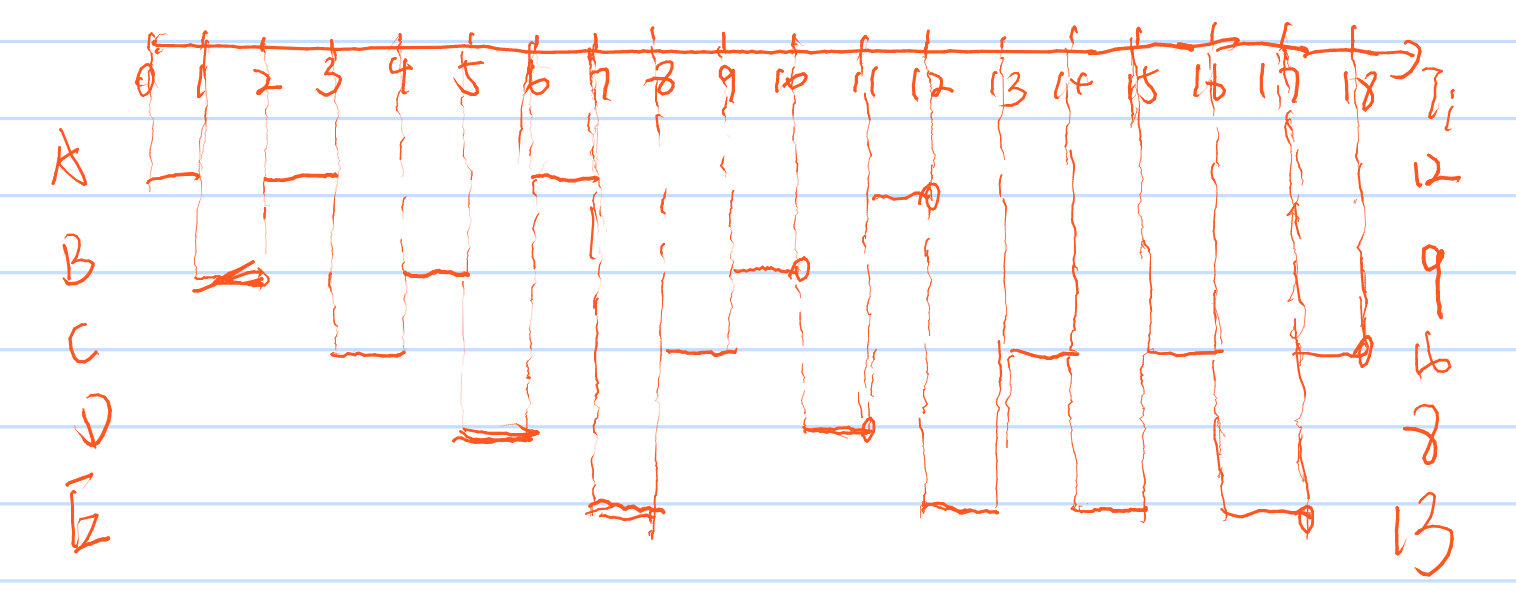 0 1 2 3 4 5 6 7 8 9 10 11 12 13 14 15 16 17 18 Ti
A 12
B 9
C 16
D 8
E 13